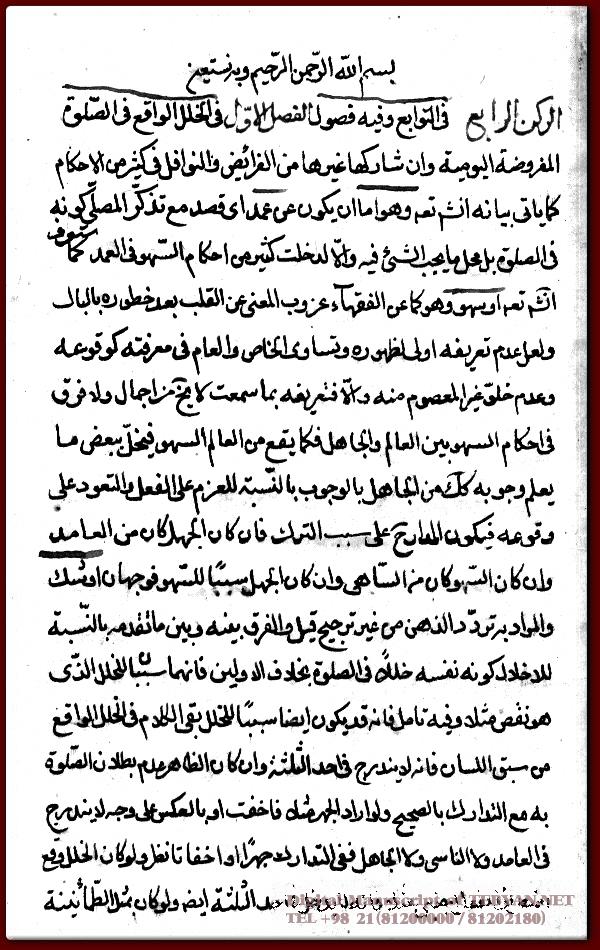 بسم الله الرّحمن الرّحيم وبه نستعين
الركن الرابع في التوابع وفيه فصول الفصل الاوّل في الخلل الواقع في الصّلوة
المفروضة اليومية وان شاركها غيرها من الفرائض والنوافل في كثير من الاحكام
كما ياتى بيانه انش تعه وهو اما ان يكون عن عمد اى قصد مع تذكّر المصلّي كونه
في الصلوة بل محل ما يجب الشئ فيه والّا لدخلت كثير من احكام السّهو في العمد كما ستعرف
انش تعه او سهو وهو كما عن الفقهاء عزوب المعنى عن القلب بعد خطوره بالبال
ولعل عدم تعريفه اولى لظهوره وتساوى الخاص والعام في معرفته كوقوعه
وعدم خلوّ غير المعصوم منه والّا فتعريفه بما سمعت لا يخ من اجمال ولا فرق
في احكام السهو بين العالم والجاهل فكما يقع من العالم السهو فيخلّ ببعض ما
يعلم وجوبه كك من الجاهل بالوجوب بالنّسبة للعزم على الفعل والتعود على
وقوعه فيكون المدار ح على سبب الترك فان كان الجهل كان من العامد
وان كان السّهو كان من السّاهي وان كان الجهل سببًا للسّهو فوجهان او شك
والمراد به تردّد الذهن من غير ترجيح قيل والفرق بينه وبين ما تقدمه بالنّسبة
للاخلال كونه نفسه خللًا في الصلوة بخلاف الاولين فانهما سببان للخلل الذى
هو نقص مثلا وفيه تامل فانه قد يكون ايضا سببًا للخلل بقى الكلام في الخلل الواقع
من سبق اللسان فانه لا يندرج في احد الثلثة وان كان الظاهر عدم بطلان الصّلوة
به مع التدارك بالصحيح ولو اراد الجهر مثلا فاخفت او بالعكس على وجه لا يندرج
في العامد ولا الناسى ولا الجاهل ففى التدارك جهرًا او اخفاتا نظر ولو كان الخلل وقع
احد الثلثة ايضه ولو كان بمثل الطّمأنينة
Digital Manuscript of TEBYAN.NET
TEL +98 21(81200000 / 81202180)